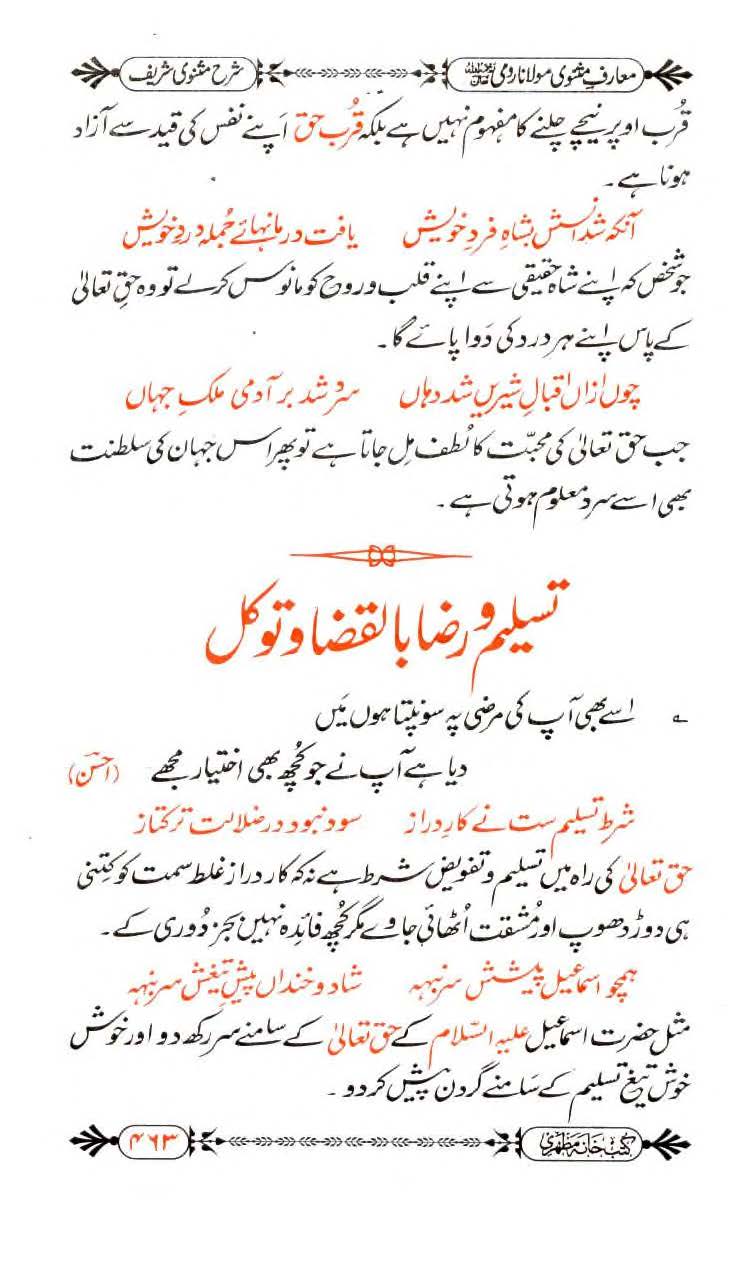 معارفِ مثنوی مولانا رومی رحمۃ اللہ تعالیٰ علیہ شرح مثنوی شریف
قُرب اوپر نیچے چلنے کا مفہوم نہیں ہے بلکہ قُربِ حق اَپنے نفس کی قید سے آزاد
ہونا ہے۔
آنکہ شد انسش بشاہِ فردِ خویش یافت درمانہائے جُملہ دردِ خویش
جو شخص کہ اپنے شاہِ حقیقی سے اپنے قلب و روح کو مانوس کر لے تو وہ حق تعالیٰ
کے پاس اپنے ہر درد کی دَوا پائے گا۔
چوں ازاں اقبالِ شیریں شد دہاں سرد شد بر آدمی ملکِ جہاں
جب حق تعالیٰ کی محبّت کا لُطف مِل جاتا ہے تو پھر اس جہان کی سلطنت
بھی اسے سرد معلوم ہوتی ہے۔
تسلیم و رضا بالقضا و توکل
؎ اسے بھی آپ کی مرضی پہ سونپتا ہوں مَیں
دیا ہے آپ نے جو کُچھ بھی اختیار مجھے (احسن)
شرطِ تسلیم ست نے کارِ دراز سود نبود در ضلالت ترکتاز
حق تعالیٰ کی راہ میں تسلیم و تفویض شرط ہے نہ کہ کار دراز غلط سمت کو کِتنی
ہی دوڑ دھوپ اور مُشقت اُٹھائی جاوے مگر کُچھ فائدہ نہیں بجز دُوری کے۔
ہمچو اسماعیل پیشش سر بنہہ شاد و خنداں پیشِ تیغش سر بنہہ
مثل حضرت اسماعیل علیہ السّلام کے حق تعالیٰ کے سامنے سر رکھ دو اور خوش
خوش تیغِ تسلیم کے سَامنے گردن پیش کر دو۔
کتب خانہ مظہری ۴۶۳